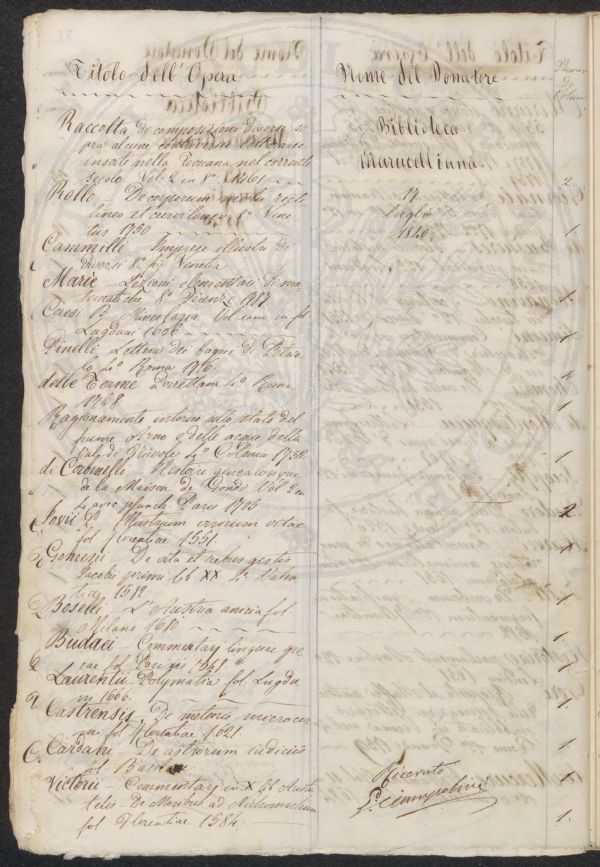 Titolo dell'Opera
Nome del Donatore
Raccolta di composizioni diverse so
pra alcune
insorte nella Toscana nel corrente
secolo Vol. 2 in 8° 1761
2
Biblioteca
Marucelliana
17
Luglio
1840.
Rollo De corporum recti
lineo et curvilineo 8° Vene
tus 1750
1.
Cammilli Imprese illustri di
diversi 8° fig Venetia
Marie Lezioni elementari di ma
tematiche 8° Firenze 1781
1.
Caesi B. Mineralogia Vol uno in fol
Lugduni 1636
1.
Pinelli Lettera dei bagni di Petrio
lo 4° Roma 1716.
1
delle Terme Porrettane 4° Roma
1768.
1
Ragionamento intorno allo stato del
fiume Arno e delle acque della
Val di Nievole 4° Colonia 1732
1
de Corbinelli Histoire genealogique
de la Maison de Gondi Vol 2 in
4 avec planch Paris 1705
2
Jovii P. Illustrium virorum vitae
fol Florentiae 1551.
1
Gomesii De vita et rebus gestis
Jacobi primi lib XX 4° Valen
tiae 1582
1.
Boselli L'Austria anicia fol
Milano 1680
1.
Budaei Commentarj linguae gre
cae fol Parigis 1548.
1
Laurentii Polymatia fol. Lugdu
ni 1666.
1
Castrensis De meteoris microcos
mi fol Florentiae 1621.
1
Cardani De astrorum iudiciis
fol Basileae
1
Victorii Commentarj in X lib Aristo
telis De Moribus ad Nichomachum
fol Florentiae 1584.
1.
Ricevuto
P. Ciampolini